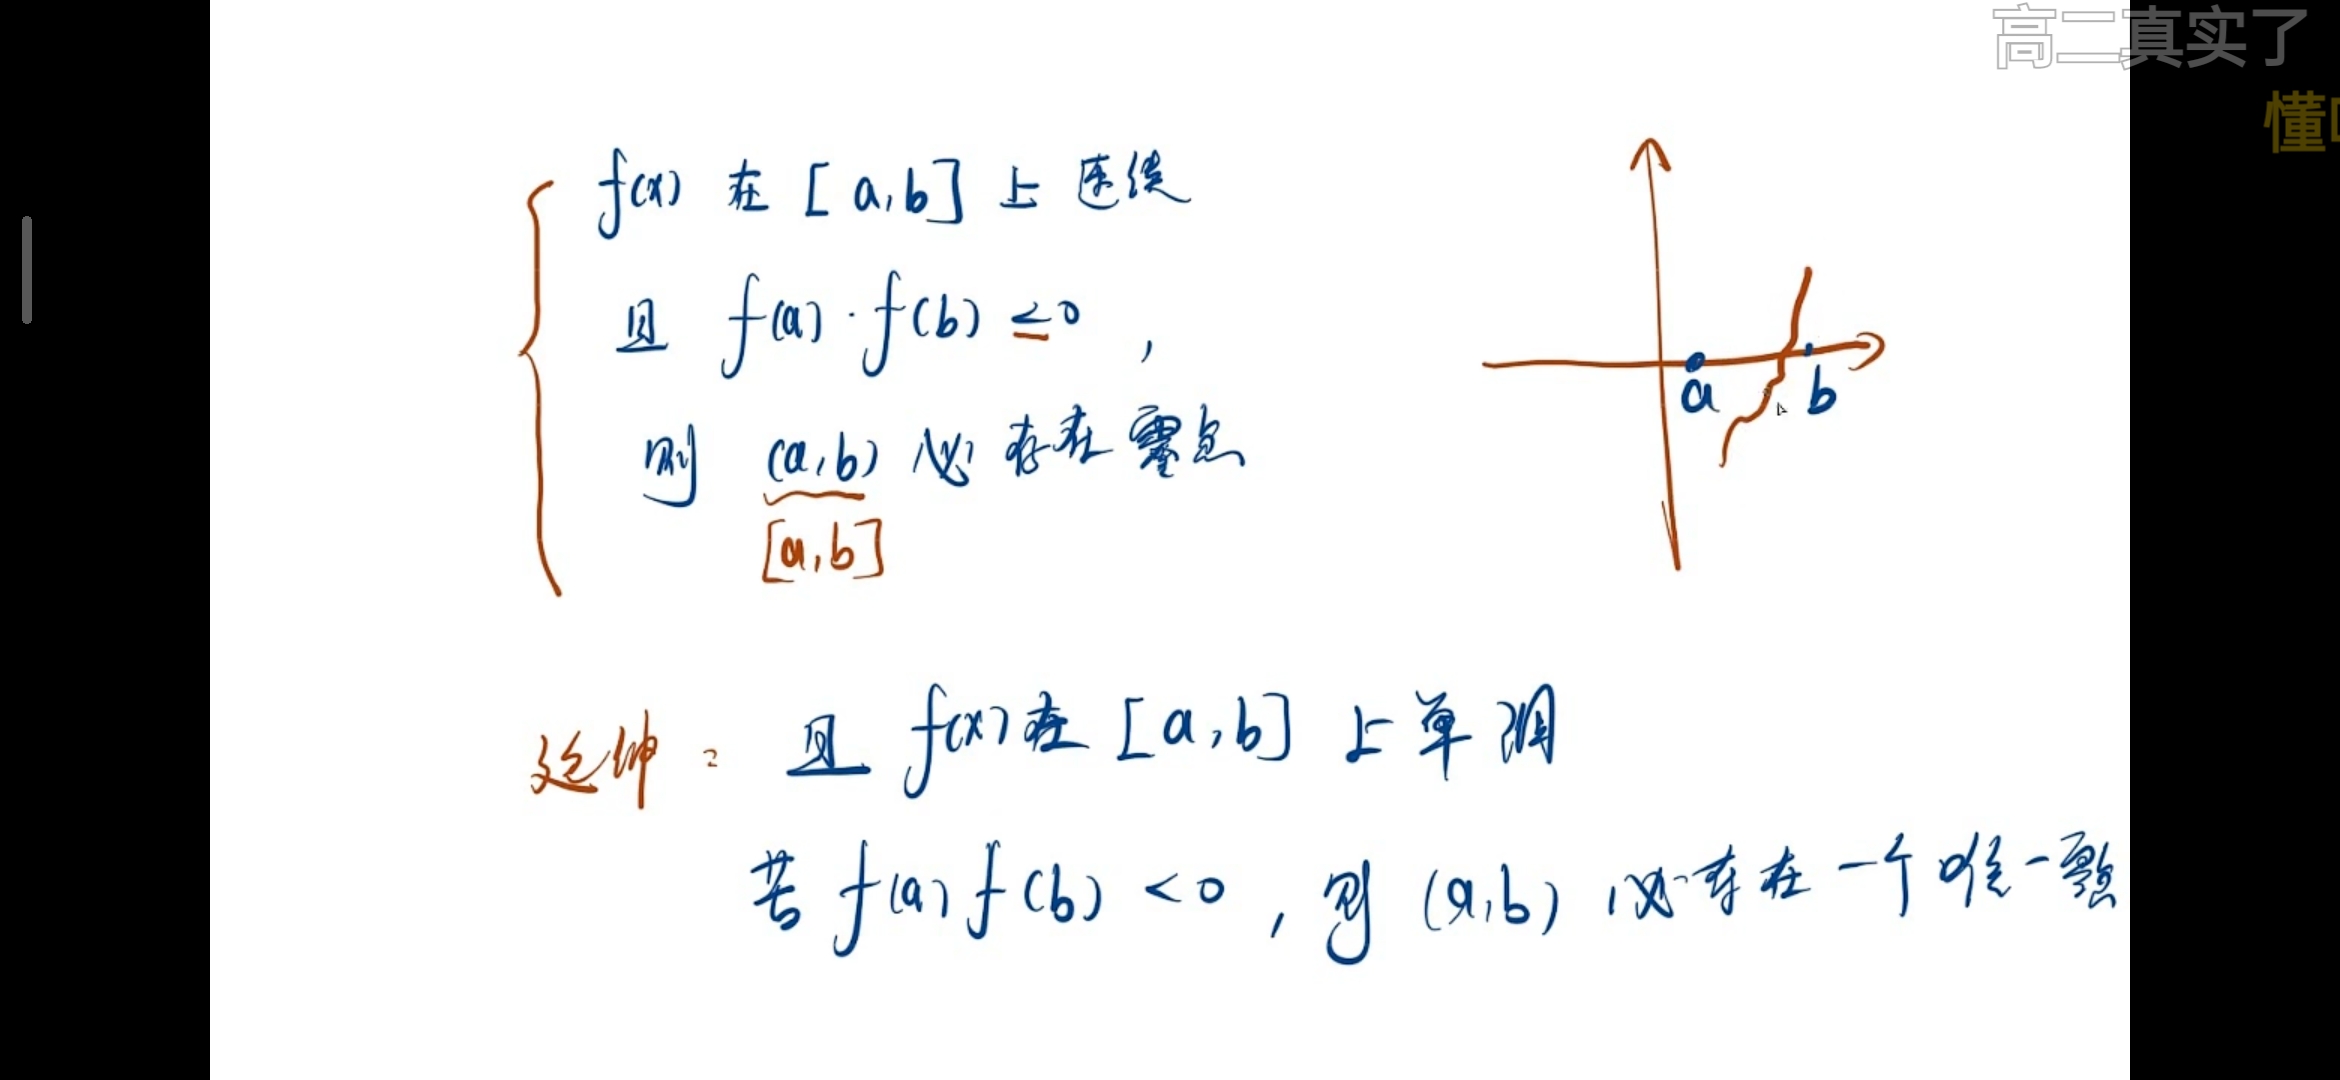 高二真实了
懂
f(x) 在 [a,b] 上连续
且 f(a)·f(b) ≤0 ,
则 (a,b) 必存在零点
[a,b]
a b
延伸: 且 f(x)在 [a,b] 上单调
若 f(a)f(b) <0 , 则 (a,b) 必存在一个唯一零点